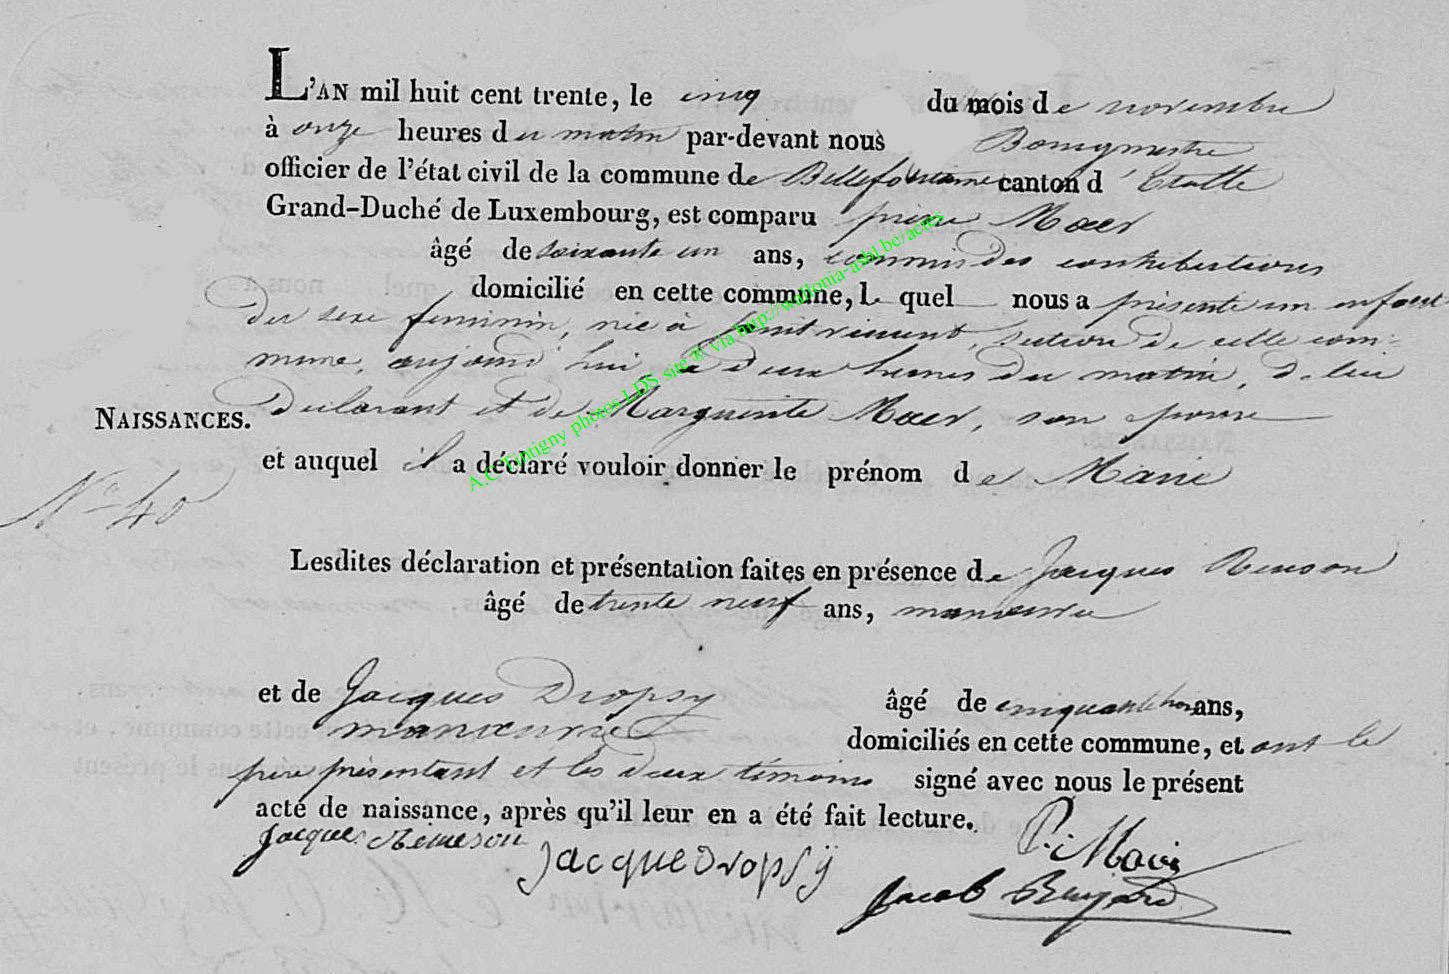 L'AN mil huit cent trente, le cinq du mois de novembre
à onze heures du matin par-devant nous Bourgmestre
officier de l'état civil de la commune de Bellefontaine canton d'Etalle
Grand-Duché de Luxembourg, est comparu pierre Maer
âgé de soixante un ans, commis des contributions
domicilié en cette commune, le quel nous a présenté un enfant
du sexe feminin, née à, section de cette com-
mune, aujourd'hui, à deux heures du matin, de lui
declarant et de Marguerite Maer, son epouse
NAISSANCES.
et auquel il a déclaré vouloir donner le prénom de Marie
No 40
Lesdites déclaration et présentation faites en présence de Jacques
âgé de trente neuf ans, manoeuvre
et de Jacques Dropsy âgé de ans,
manoeuvre domiciliés en cette commune, et ont le
père présentant et les deux témoins signé avec nous le présent
acté de naissance, après qu'il leur en a été fait lecture.
Jacque
Jacque Dropsÿ
P.
Jacob
A.G. Tintigny photos LDS site © via http://wallonia-asbl.be/actes